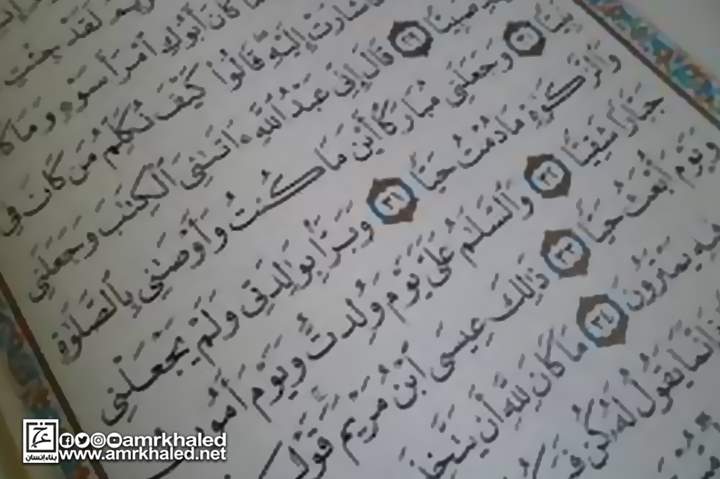 لَقَدْ جِئْتِ
مَا كَانَ أَبُوكِ ٱمْرَأَ سَوْءٍ وَمَا كَا
فَأَشَارَتْ إِلَيْهِ قَالُوا۟ كَيْفَ نُكَلِّمُ مَن كَانَ فِى
صَبِيًّا ٢٩ قَالَ إِنِّى عَبْدُ ٱللَّهِ ءَاتَىٰنِىَ ٱلْكِتَٰبَ وَجَعَلَنِى
نَبِيًّا ٣٠ وَجَعَلَنِى مُبَارَكًا أَيْنَ مَا كُنتُ وَأَوْصَٰنِى بِٱلصَّلَوٰةِ
وَٱلزَّكَوٰةِ مَا دُمْتُ حَيًّا ٣١ وَبَرًّۢا بِوَٰلِدَتِى وَلَمْ يَجْعَلْنِى
جَبَّارًا شَقِيًّا ٣٢ وَٱلسَّلَٰمُ عَلَىَّ يَوْمَ وُلِدتُّ وَيَوْمَ أَمُوتُ
وَيَوْمَ أُبْعَثُ حَيًّا ٣٣ ذَٰلِكَ عِيسَى ٱبْنُ مَرْيَمَ قَوْلَ
فِيهِ يَمْتَرُونَ ٣٤ مَا كَانَ لِلَّهِ أَن يَتَّخِذَ
إِنَّمَا يَقُولُ لَهُۥ كُن فَيَكُ
amrkhaled
www.amrkhaled.net
بناء إنسان